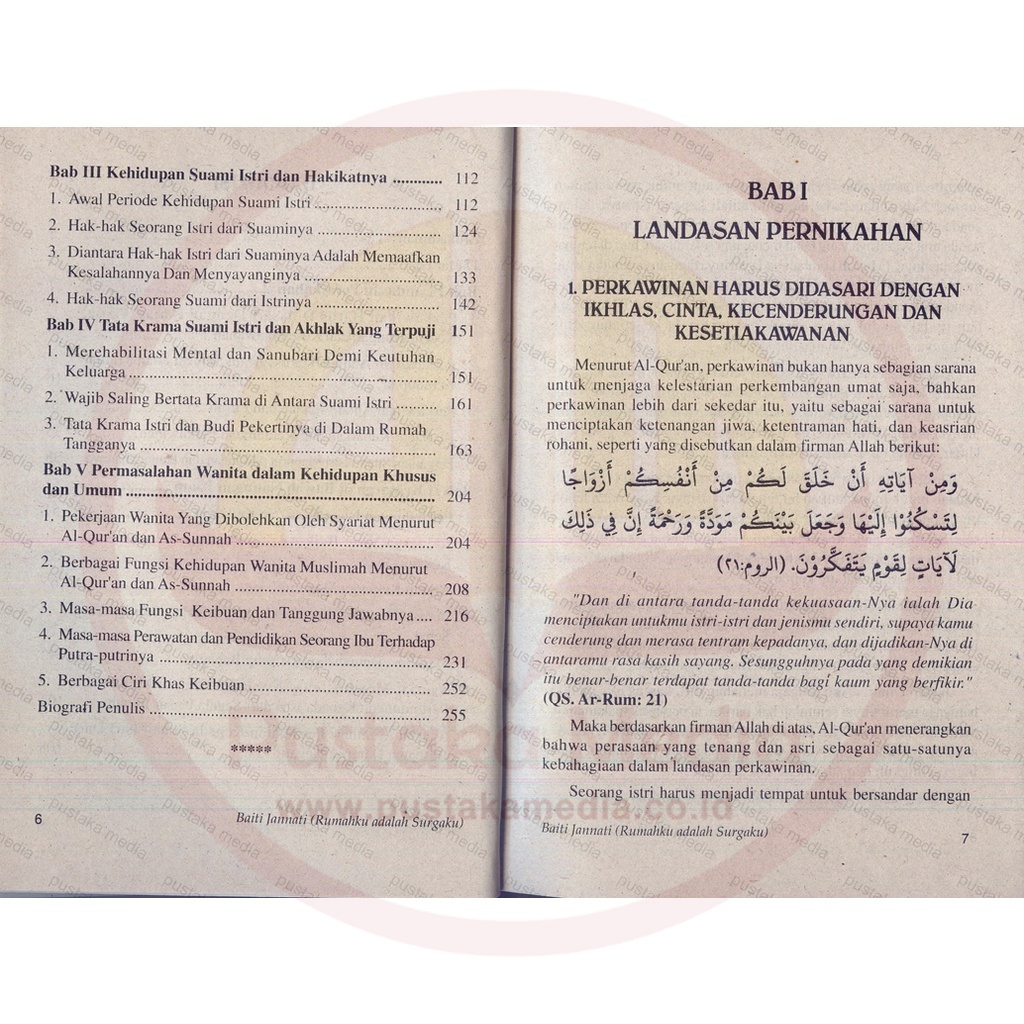 Bab III Kehidupan Suami Istri dan Hakikatnya ............ 112
1. Awal Periode Kehidupan Suami Istri ................................ 112
2. Hak-hak Seorang Istri dari Suaminya ............................... 124
3. Diantara Hak-hak Istri dari Suaminya Adalah Memaafkan
Kesalahannya Dan Menyayanginya ................................... 133
4. Hak-hak Seorang Suami dari Istrinya ............................... 142
Bab IV Tata Krama Suami Istri dan Akhlak Yang Terpuji 151
1. Merehabilitasi Mental dan Sanubari Demi Keutuhan
Keluarga ............................................................................. 151
2. Wajib Saling Bertata Krama di Antara Suami Istri .......... 161
3. Tata Krama Istri dan Budi Pekertinya di Dalam Rumah
Tangganya .......................................................................... 163
Bab V Permasalahan Wanita dalam Kehidupan Khusus
dan Umum ............................................................................ 204
1. Pekerjaan Wanita Yang Dibolehkan Oleh Syariat Menurut
Al-Qur'an dan As-Sunnah ................................................. 204
2. Berbagai Fungsi Kehidupan Wanita Muslimah Menurut
Al-Qur'an dan As-Sunnah ................................................. 208
3. Masa-masa Fungsi Keibuan dan Tanggung Jawabnya .... 216
4. Masa-masa Perawatan dan Pendidikan Seorang Ibu Terhadap
Putra-putrinya .................................................................... 231
5. Berbagai Ciri Khas Keibuan ............................................. 252
Biografi Penulis ....................................................................... 255
*****
6 Baiti Jannati (Rumahku adalah Surgaku)
BAB I
LANDASAN PERNIKAHAN
1. PERKAWINAN HARUS DIDASARI DENGAN
IKHLAS, CINTA, KECENDERUNGAN DAN
KESETIAKAWANAN
Menurut Al-Qur'an, perkawinan bukan hanya sebagian sarana
untuk menjaga kelestarian perkembangan umat saja, bahkan
perkawinan lebih dari sekedar itu, yaitu sebagai sarana untuk
menciptakan ketenangan jiwa, ketentraman hati, dan keasrian
rohani, seperti yang disebutkan dalam firman Allah berikut:
وَمِنْ آيَاتِهِ أَنْ خَلَقَ لَكُمْ مِنْ أَنْفُسِكُمْ أَزْوَاجًا
لِتَسْكُنُوْا إِلَيْهَا وَجَعَلَ بَيْنَكُمْ مَوَدَّةً وَرَحْمَةً إِنَّ فِي ذَلِكَ
لَآيَاتٍ لِقَوْمٍ يَتَفَكَّرُوْنَ. (الروم:٢١)
"Dan di antara tanda-tanda kekuasaan-Nya ialah Dia
menciptakan untukmu istri-istri dan jenismu sendiri, supaya kamu
cenderung dan merasa tentram kepadanya, dan dijadikan-Nya di
antaramu rasa kasih sayang. Sesungguhnya pada yang demikian
itu benar-benar terdapat tanda-tanda bagi kaum yang berfikir."
(QS. Ar-Rum: 21)
Maka berdasarkan firman Allah di atas, Al-Qur'an menerangkan
bahwa perasaan yang tenang dan asri sebagai satu-satunya
kebahagiaan dalam landasan perkawinan.
Seorang istri harus menjadi tempat untuk bersandar dengan
Baiti Jannati (Rumahku adalah Surgaku) 7
Pustaka Media
www.pustakamedia.co.id